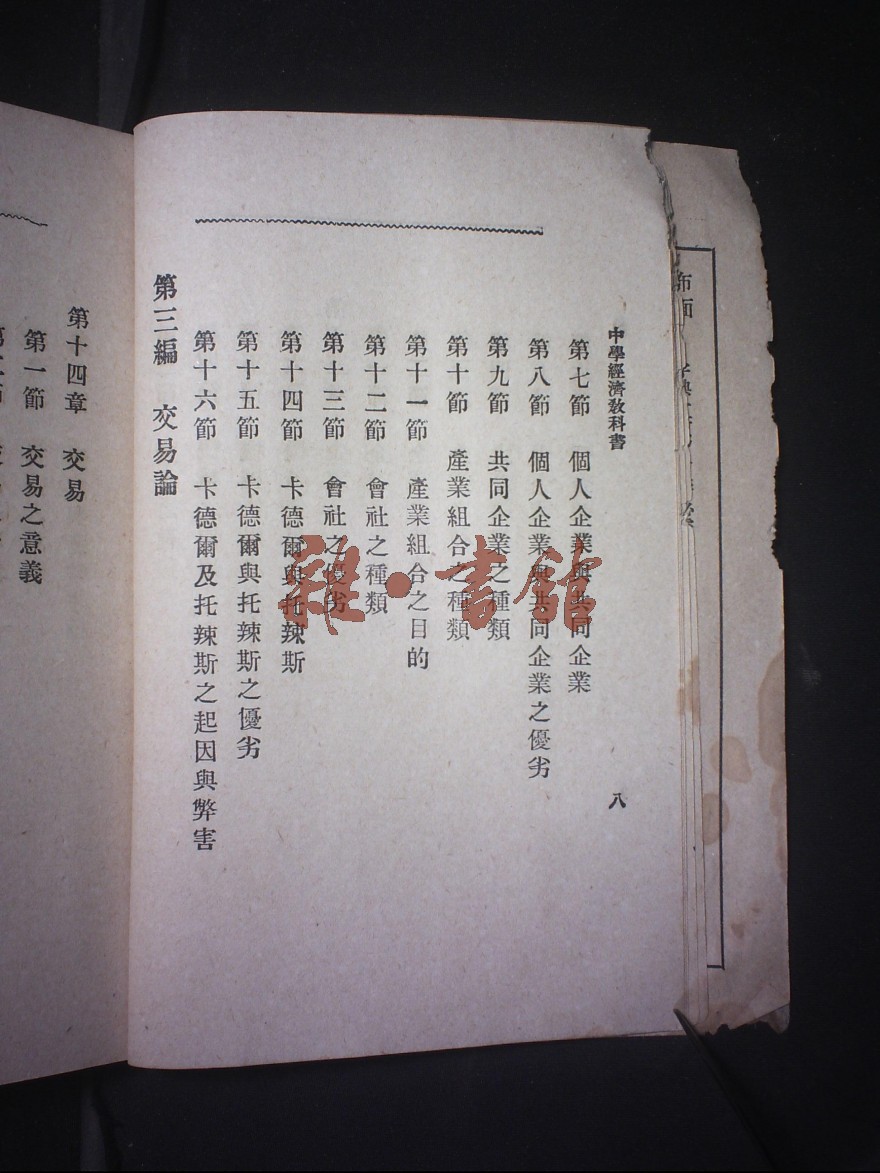 中學經濟敎科書
八
第七節 個人企業與共同企業
第八節 個人企業與共同企業之優劣
第九節 共同企業之種類
第十節 產業組合之種類
第十一節 產業組合之目的
第十二節 會社之種類
第十三節 會社之優劣
第十四節 卡德爾與托辣斯
第十五節 卡德爾與托辣斯之優劣
第十六節 卡德爾及托辣斯之起因與弊害
第三編 交易論
第十四章 交易
第一節 交易之意義
雜·書館